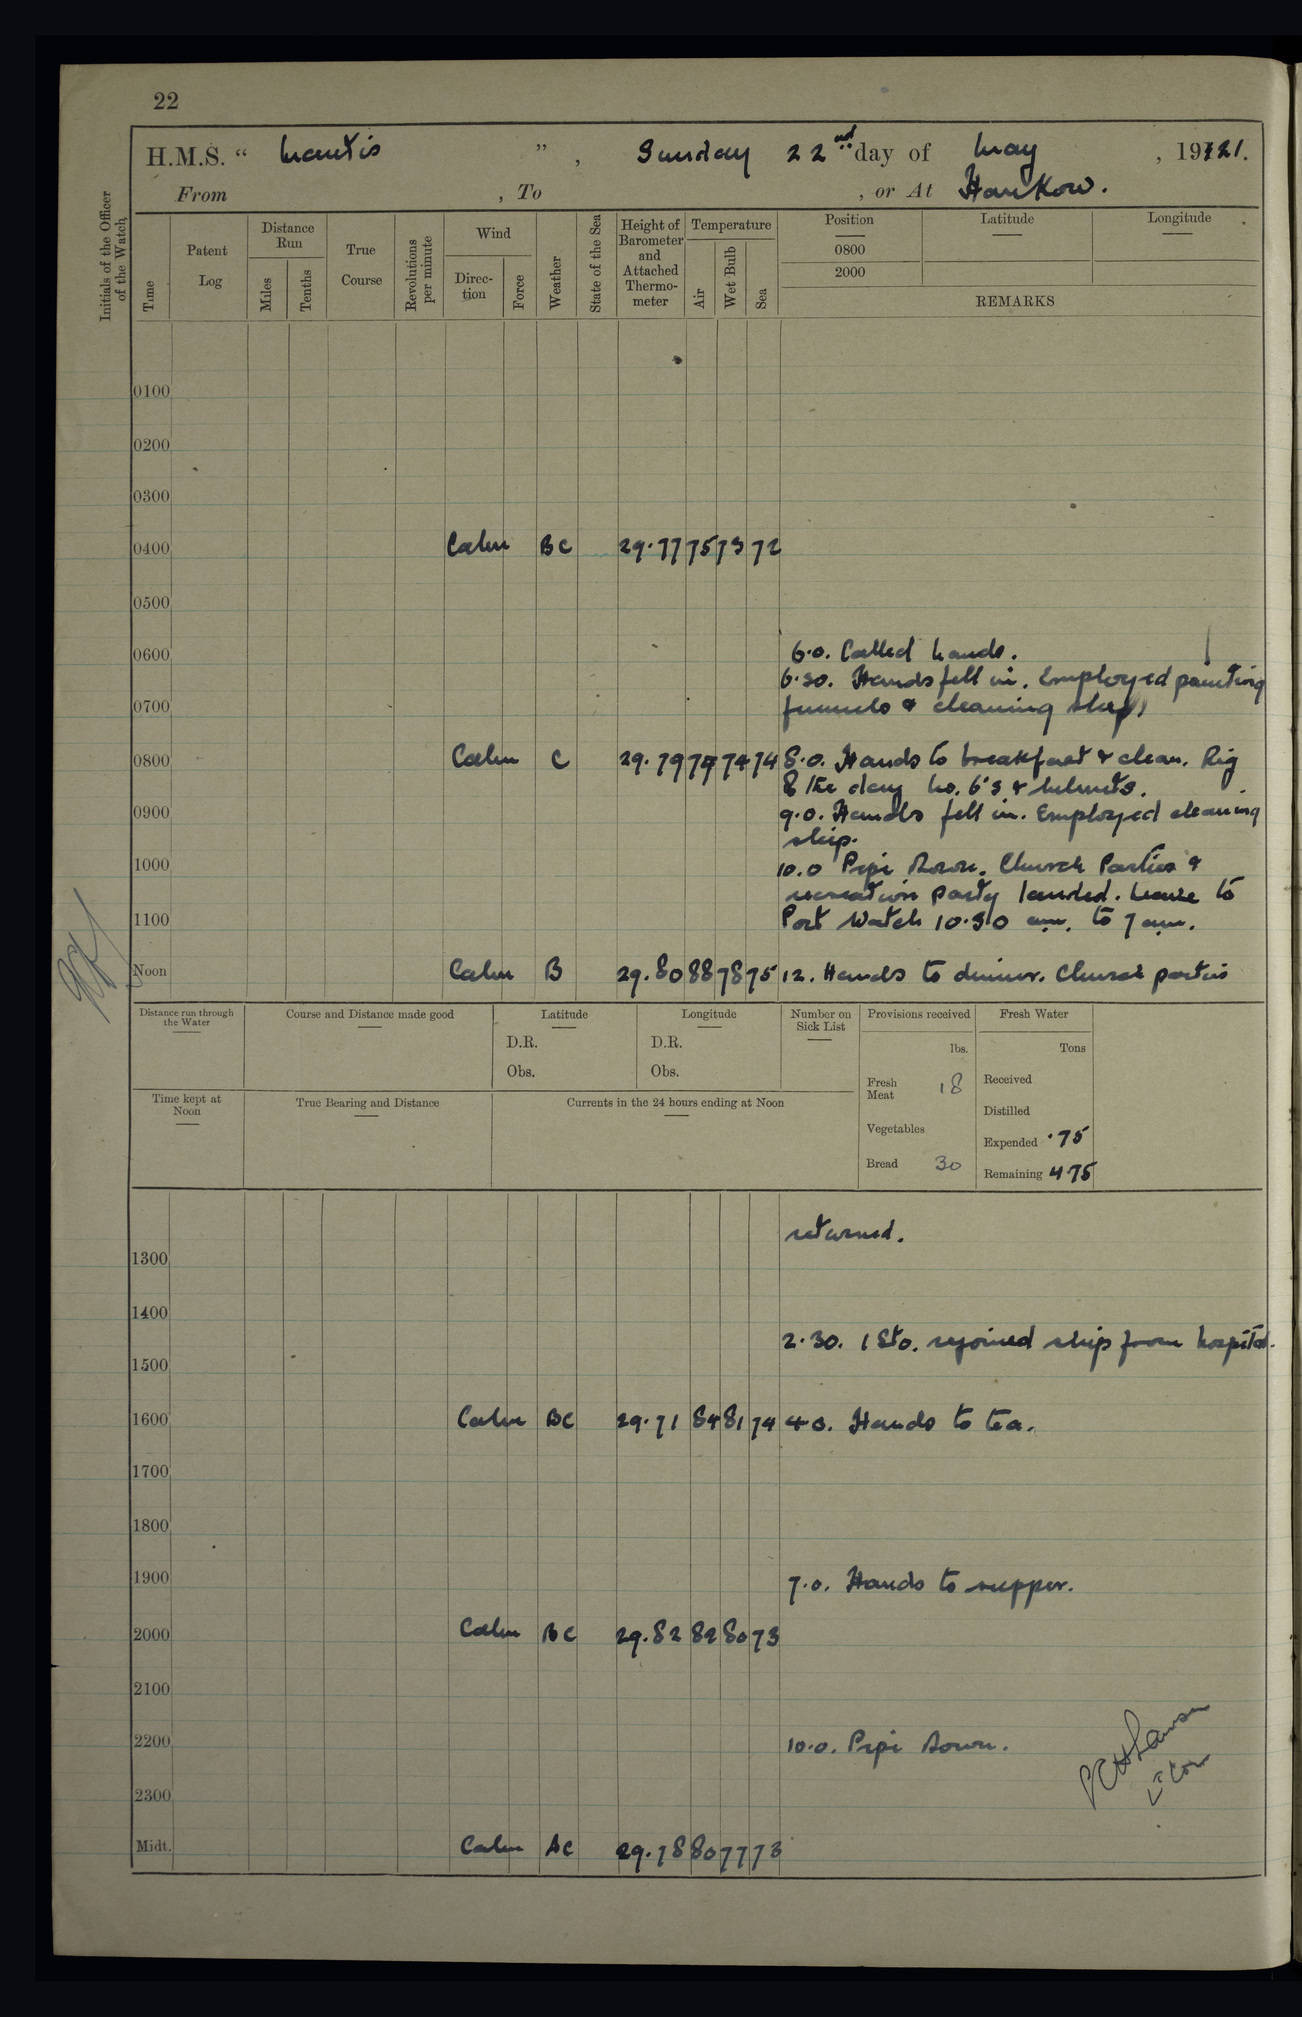 22
H.M.S. " Mantis " , Sunday 22nd day of May , 1921.
From , To , or At Hankow.
Initials of the Officer of the Watch,
Time
Patent Log
Distance Run
Miles
Tenths
True Course
Revolutions per minute
Wind
Direc-tion
Force
Weather
State of the Sea
Height of Barometer and Attached Thermo-meter
Temperature
Air
Wet Bulb
Sea
Position
0800
2000
Latitude
Longitude
REMARKS
0100
0200
0300
0400 Calm BC 29.77 75 73 72
0500
0600 6.0. Called hands.
6.30. Hands fell in. Employed painting
0700 funnels & cleaning ship)
0800 Calm C 29.79 77 74 74 8.0. Hands to breakfast & clean. Rig
of the day No. 6's & helmets.
0900 9.0. Hands fell in. Employed cleaning
ship.
1000 10.0 Pipe Down. Church Parties &
recreation party landed. Leave to
1100 Port Watch 10.30 am. to 7 am.
Noon Calm B 29.80 88 78 75 12. Hands to dinner. Church parties
Distance run through the Water
Course and Distance made good
Latitude
D.R.
Obs.
Longitude
D.R.
Obs.
Number on Sick List
Provisions received
lbs.
Fresh Meat 18
Vegetables
Bread 30
Fresh Water
Tons
Received
Distilled
Expended .75
Remaining 475
Time kept at Noon
True Bearing and Distance
Currents in the 24 hours ending at Noon
returned.
1300
1400
2.30. 1 Sto. rejoined ship from hospital.
1500
1600 Calm BC 29.71 84 81 74 4.0. Hands to tea.
1700
1800
1900 7.0. Hands to supper.
2000 Calm BC 29.82 82 80 73
2100
2200 10.0. Pipe Down.
2300
Lt Com
Midt. Calm BC 29.78 80 77 73